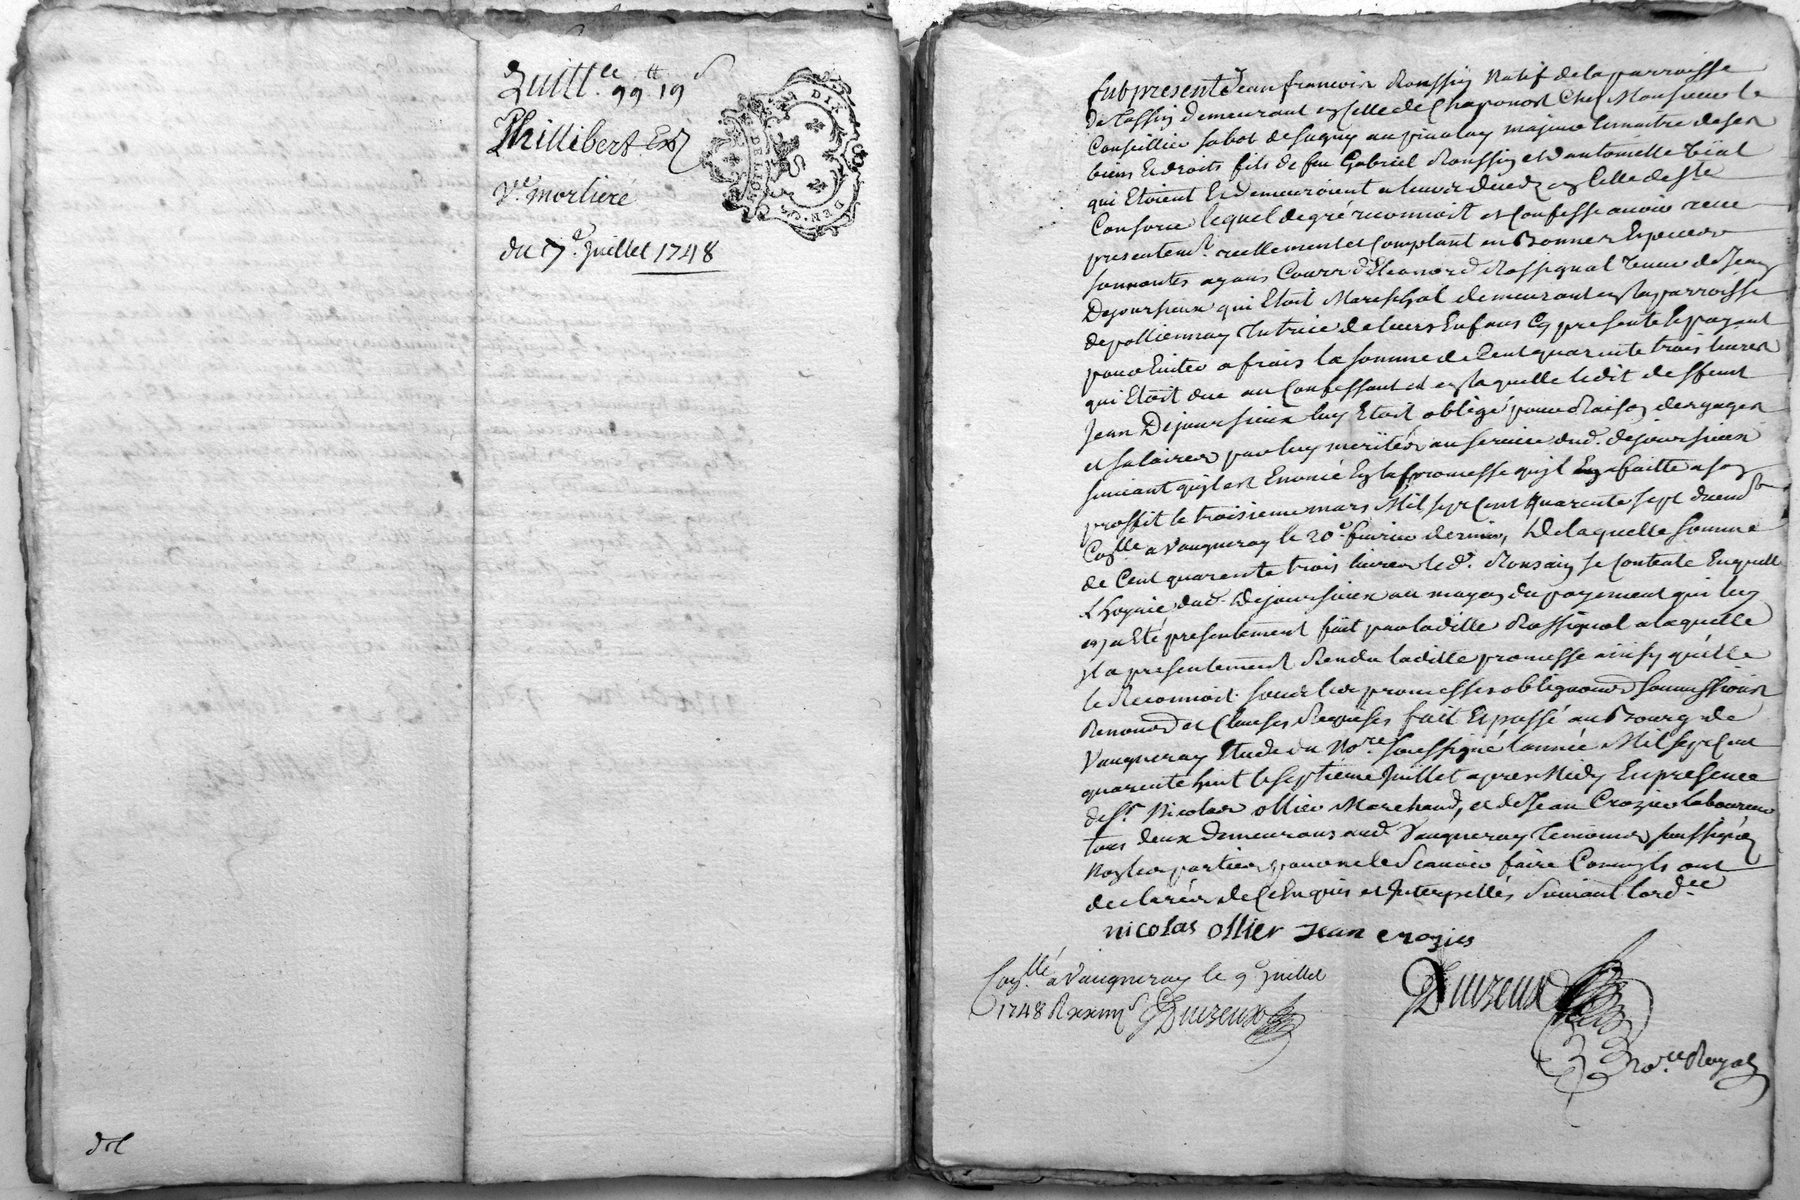 Quitt.ce 99.lt 19 s
Phillibert
V.e morliere
du 7.e Juillet 1748
DIX DEN.ERS
DE LION
dél
fut present Jean francois Roussin Natif de la parroisse
de Tassin demeurant en celle de Chaponost Chez Monsieur le
Conseillier Sabot de au majeur et maitre de ses
biens et droits fils de feu Gabriel Roussin et d'antoinette
qui Etoient et demeuroient a leur deced en Celle de Ste
Consorce lequel de gré reconnoit et Confesse avoir receu
presentem.t reellement et Comptant en Bonnes Especes
sonnantes ayans Cours d'Eleonord Rossignol veuve de Jean
Dejoursieux qui Etoit Mareschal demeurant en la parroisse
de pollionnay tutrice de leurs Enfans Cy presente et payant
pour Eviter a frais la somme de Cent quarente trois livres
qui Etoit due au Confessant et en laquelle le dit deffunt
Jean Dejoursieux luy Etoit obligé pour Raison de gages
et salaires par luy mérités au service dud. dejoursieux
suivant qu'il est Enoncé En la promesse qu'il En a faitte a son
proffit le troisieme mars Mil sept Cent quarente sept
Con.lle a Vaugneray le 20.e fevrier dernier, de laquelle somme
de Cent quarente trois livres led. Roussin se Contente En quitte
L'hoyrie dud. Dejoursieux au moyen du payement qui luy
en a Eté presentement fait par laditte Rossignol a laquelle
il a presentement Rendu laditte promesse ainsy qu'elle
le Reconnoit sous les promesses obligaons soumissions
Renonons et Clauses Requises fait Et passé au Bourg de
Vaugneray Etude du No.re soussigné l'année Mil sept Cent
quarente huit le septieme Juillet apres Midy En presence
de S.r Nicolas ollier Marchand, et de Jean Crozier laboureur
tous deux demeurans aud. Vaugneray temoins soussignés
Non les parties pour ne le scavoir faire Comm'ils ont
declarés de Ce Enquis et Interpellés suivant l'ord.ce
nicolas ollier Jean crozier
Con.llé a Vaugneray le 9.e Juillet
1748 R xxiiii s Duizeux
Duizeux
No.re Royal